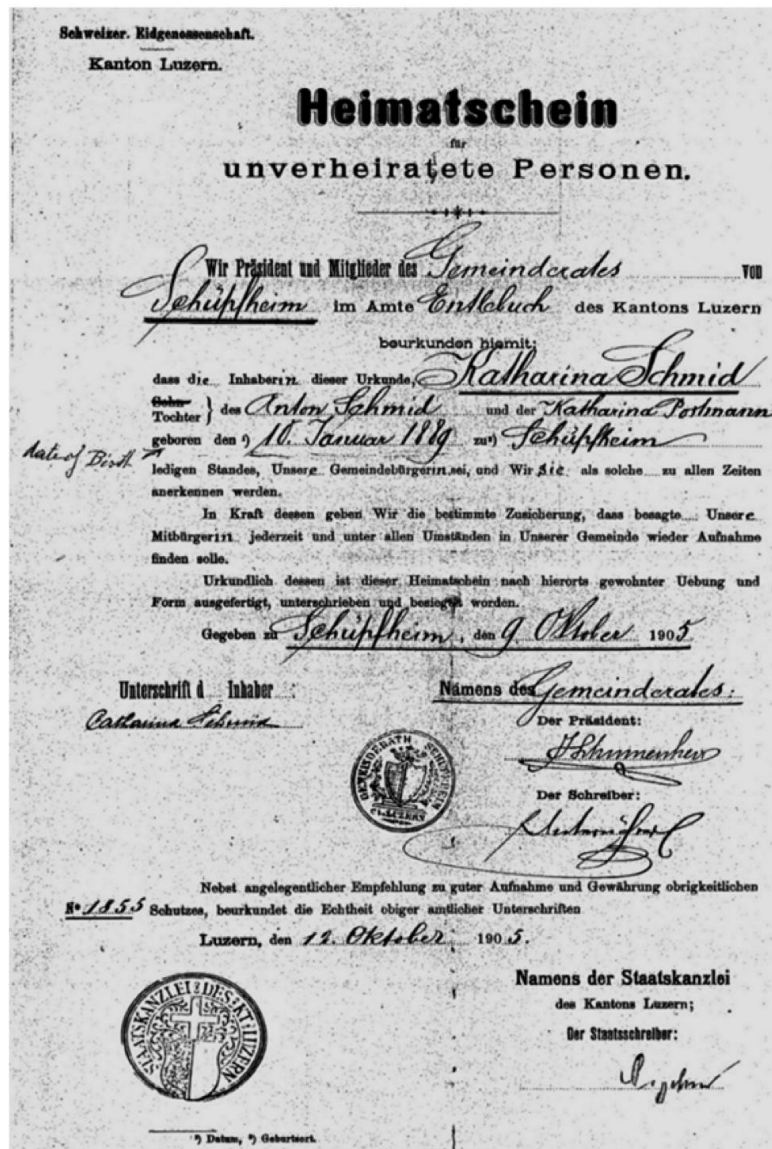 Schweizer. Eidgenossenschaft.
Kanton Luzern.
Heimatschein
für
unverheiratete Personen.
Wir Präsident und Mitglieder des Gemeinderates von
Schüpfheim im Amte Entlebuch des Kantons Luzern
beurkunden hiemit:
dass die Inhaberin dieser Urkunde, Katharina Schmid
Sohn
Tochter } des Anton Schmid und der Katharina Portmann
geboren den ¹) 10. Januar 1889 zu ²) Schüpfheim
date of Birth
ledigen Standes, Unsere Gemeindebürgerin sei, und Wir sie als solche zu allen Zeiten
anerkennen werden.
In Kraft dessen geben Wir die bestimmte Zusicherung, dass besagte Unsere
Mitbürgerin jederzeit und unter allen Umständen in Unserer Gemeinde wieder Aufnahme
finden solle.
Urkundlich dessen ist dieser Heimatschein nach hierorts gewohnter Uebung und
Form ausgefertigt, unterschrieben und besiegelt worden.
Gegeben zu Schüpfheim, den 9 Oktober 1905
Unterschrift d Inhaber :
Namens des Gemeinderates:
Catharina Schmid
Der Präsident:
GEMEINDERATH SCHÜPFHEIM
Ct. LUZERN
Der Schreiber:
Nebst angelegentlicher Empfehlung zu guter Aufnahme und Gewährung obrigkeitlichen
No 1855 Schutzes, beurkundet die Echtheit obiger amtlicher Unterschriften
Luzern, den 12. Oktober 1905.
Namens der Staatskanzlei
des Kantons Luzern;
Der Staatsschreiber:
STAATSKANZLEI DES KT. LUZERN
¹) Datum, ²) Geburtsort.